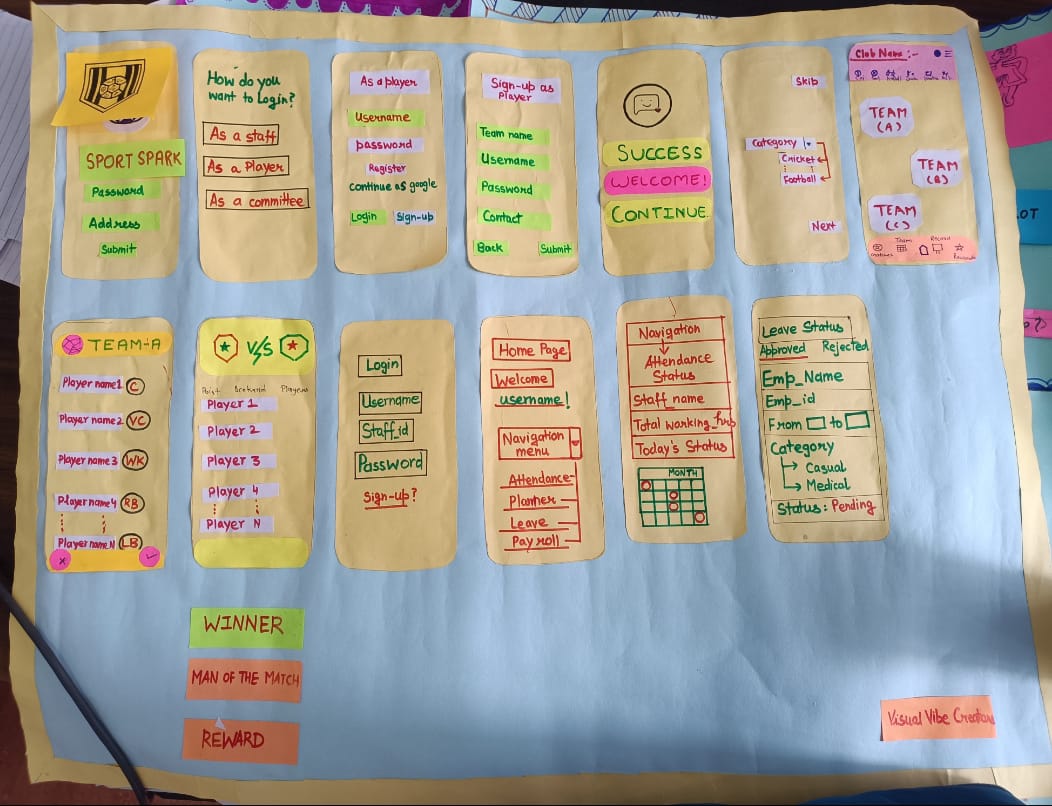 SPORT SPARK
Password
Address
Submit
How do you
want to Login?
As a staff
As a Player
As a committee
As a player
Username
password
Register
continue as google
Login Sign-up
Sign-up as
Player
Team name
Username
Password
Contact
Back Submit
SUCCESS
WELCOME!
CONTINUE
Skib
Category
Cricket
Football
Next
Club Name :-
TEAM
(A)
TEAM
(B)
TEAM
(C)
Team
Record
TEAM-A
Player name1 C
Player name2 VC
Player name 3 WK
Player name4 RB
Player name N LB
V/S
Point Scorboard Players
Player 1
Player 2
Player 3
Player 4
Player N
Login
Username
Staff_id
Password
Sign-up?
Home Page
Welcome
username!
Navigation
menu
Attendance
Planner
Leave
Pay roll
Navigation
Attendance
Status
Staff_name
Total working_hrs
Today's Status
MONTH
Leave Status
Approved Rejected
Emp_Name
Emp_id
From to
Category
Casual
Medical
Status: Pending
WINNER
MAN OF THE MATCH
REWARD
Visual Vibe Creators